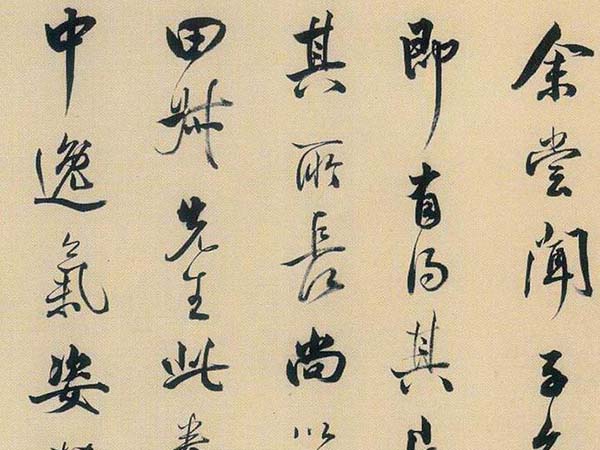 余嘗聞子
即有得其
其所長尚以
田叔先生此卷
中逸氣姿